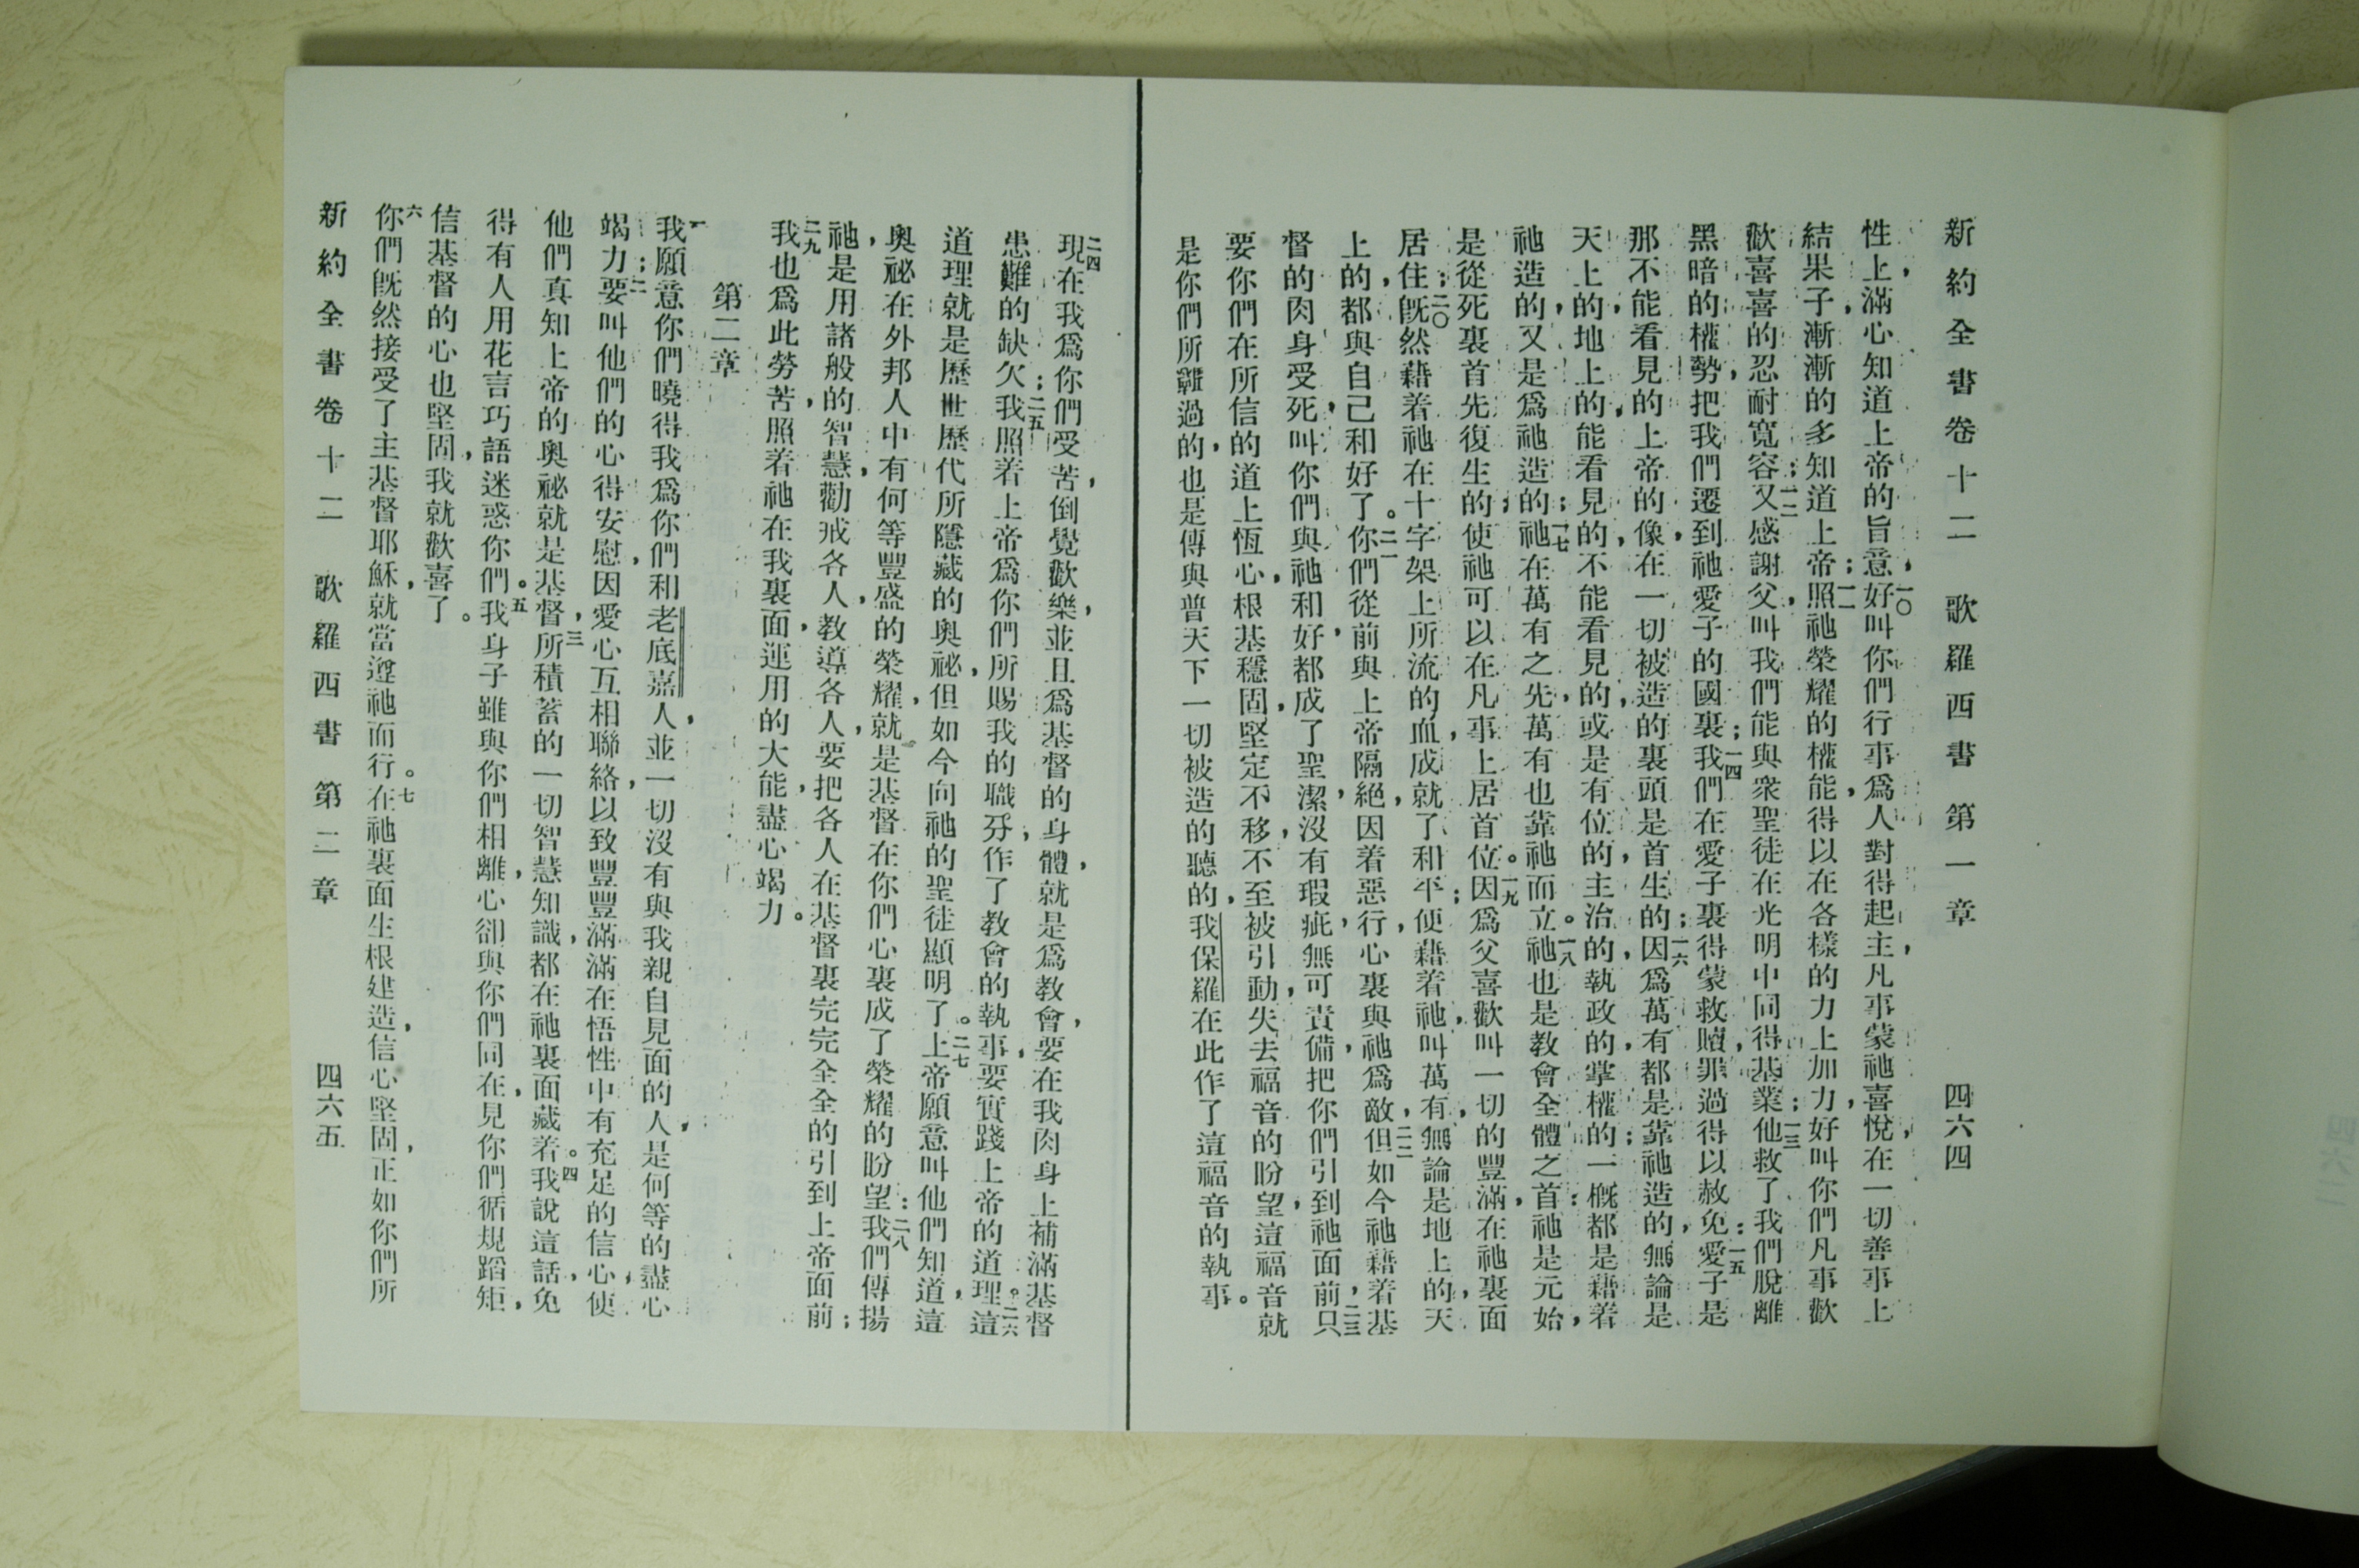 新約全書卷十二 歌羅西書 第一章 四六四
性上，滿心知道上帝的旨意，一〇好叫你們行事爲人對得起主，凡事蒙祂喜悅，在一切善事上
結果子，漸漸的多知道上帝；一一照祂榮耀的權能，得以在各樣的力上加力，好叫你們凡事歡
歡喜喜的忍耐寬容；一二又感謝父，叫我們能與衆聖徒在光明中同得基業；一三他救了我們脫離
黑暗的權勢，把我們遷到祂愛子的國裏；一四我們在愛子裏得蒙救贖，罪過得以赦免：一五愛子是
那不能看見的上帝的像，在一切被造的裏頭是首生的；一六因爲萬有都是靠祂造的，無論是
天上的，地上的，能看見的，不能看見的，或是有位的，主治的，執政的，掌權的；一概都是藉着
祂造的，又是爲祂造的；一七祂在萬有之先，萬有也靠祂而立。一八祂也是教會全體之首：祂是元始，
是從死裏首先復生的；使祂可以在凡事上居首位。一九因爲父喜歡叫一切的豐滿，在祂裏面
居住；二〇旣然藉着祂在十字架上所流的血，成就了和平；便藉着祂，叫萬有，無論是地上的，天
上的，都與自己和好了。二一你們從前與上帝隔絕，因着惡行，心裏與祂爲敵，二二但如今祂藉着基
督的肉身受死，叫你們與祂和好，都成了聖潔，沒有瑕疵，無可責備，把你們引到祂面前，二三只
要你們在所信的道上恆心，根基穩固，堅定不移，不至被引動，失去福音的盼望，這福音就
是你們所聽過的，也是傳與普天下一切被造的聽的，我保羅在此作了這福音的執事。
二四現在我爲你們受苦，倒覺歡樂，並且爲基督的身體，就是爲教會，要在我肉身上補滿基督
患難的缺欠；二五我照着上帝爲你們所賜我的職分，作了教會的執事，要實踐上帝的道理。二六這
道理就是歷世歷代所隱藏的奧祕，但如今向祂的聖徒顯明了。二七上帝願意叫他們知道，這
奧祕在外邦人中有何等豐盛的榮耀，就是基督在你們心裏成了榮耀的盼望：二八我們傳揚
祂，是用諸般的智慧，勸戒各人，教導各人，要把各人在基督裏完完全全的引到上帝面前；
二九我也爲此勞苦，照着祂在我裏面，運用的大能，盡心竭力。
第二章
一我願意你們曉得我爲你們和老底嘉人，並一切沒有與我親自見面的人，是何等的盡心
竭力；二要叫他們的心得安慰，因愛心互相聯絡，以致豐豐滿滿在悟性中有充足的信心，使
他們真知上帝的奧祕，就是基督，三所積蓄的一切智慧知識，都在祂裏面藏着。四我說這話，免
得有人用花言巧語迷惑你們。五我身子雖與你們相離，心卻與你們同在，見你們循規蹈矩，
信基督的心也堅固，我就歡喜了。
六你們旣然接受了主基督耶穌，就當遵祂而行。七在祂裏面生根建造，信心堅固，正如你們所
新約全書卷十二 歌羅西書 第二章 四六五